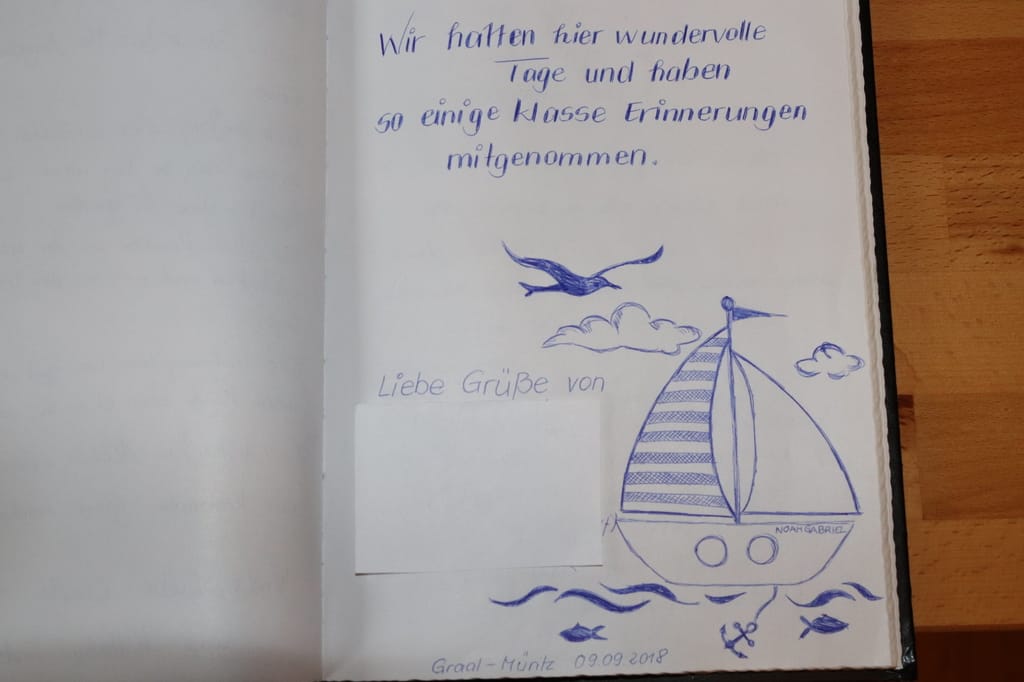 Wir hatten hier wundervolle
Tage und haben
so einige klasse Erinnerungen
mitgenommen.
Liebe Grüße von
NOAH GABRIEL
Graal-Müritz 09.09.2018